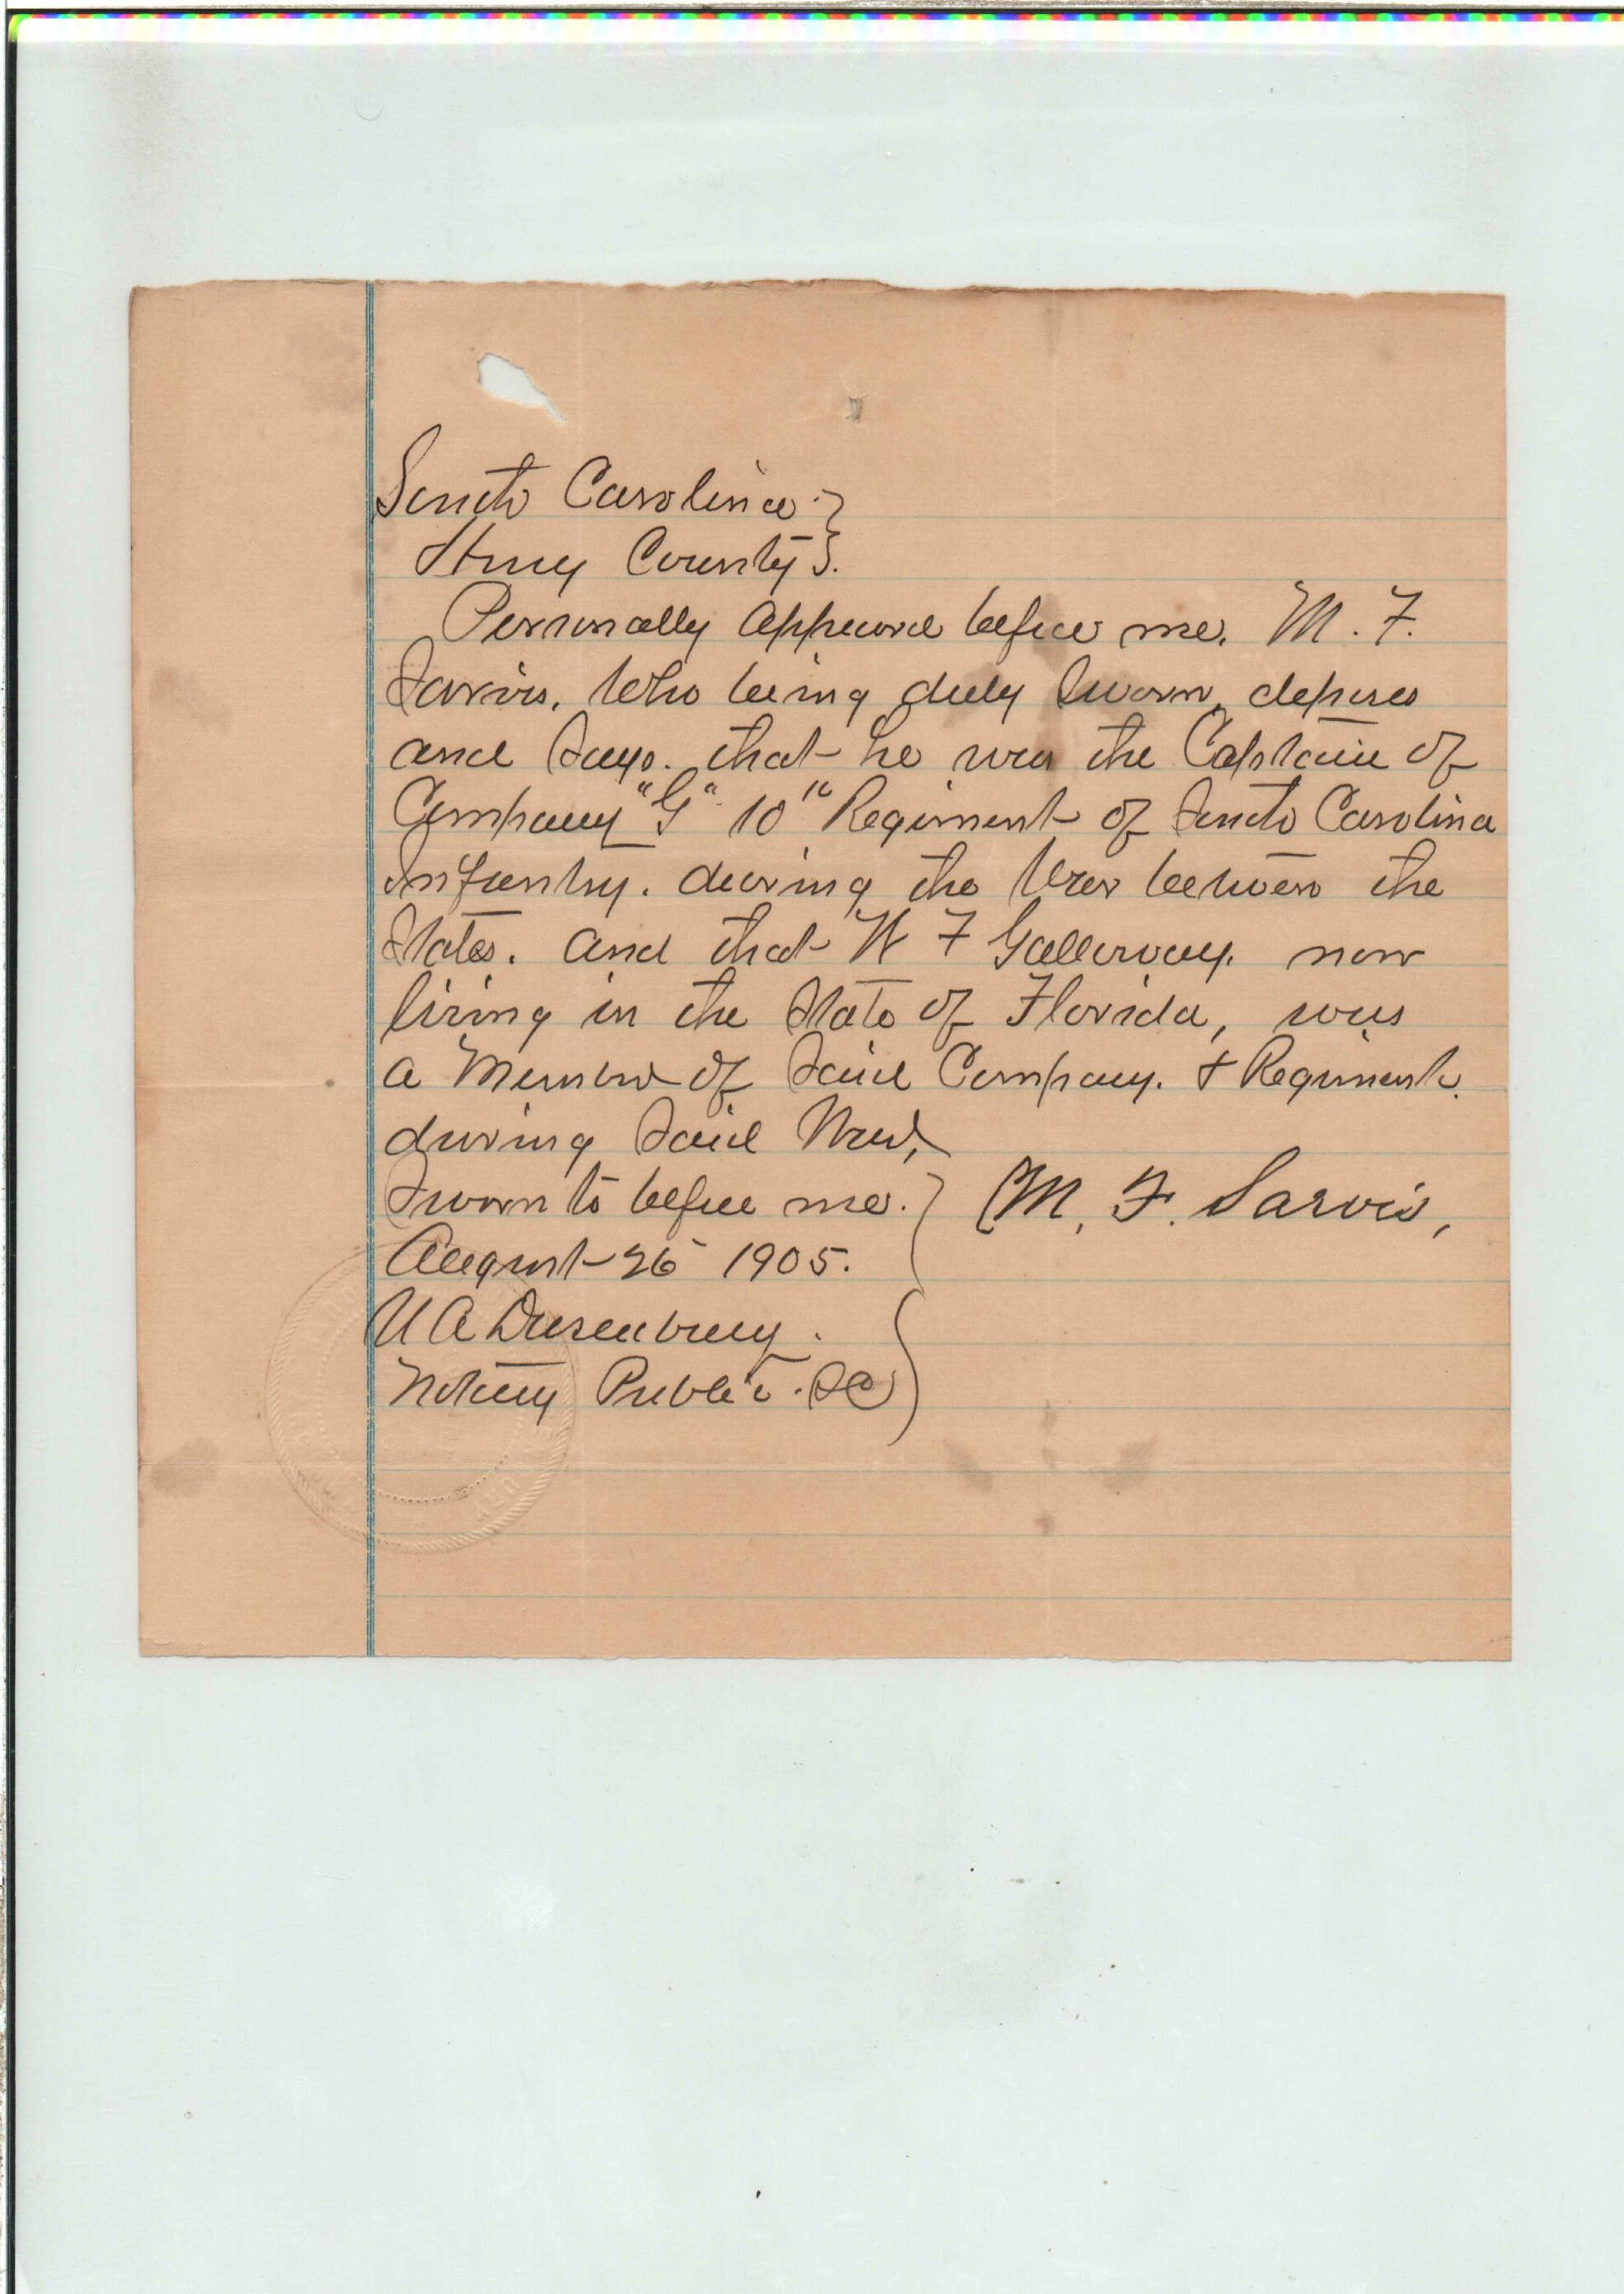 South Carolina }
Horry County }.
Personally appeared before me. M. F.
Sarvis, who being duly sworn, deposes
and says. that he was the Captain of
Company "G" 10" Regiment of South Carolina
Infantry. during the War between the
States. and that W F Galloway. now
living in the State of Florida, was
a Member of Said Company. & Regiment.
during Said War,
Sworn to before me. } M. F. Sarvis,
August 26 1905.
U A Dusenbury.
Notary Public. SC